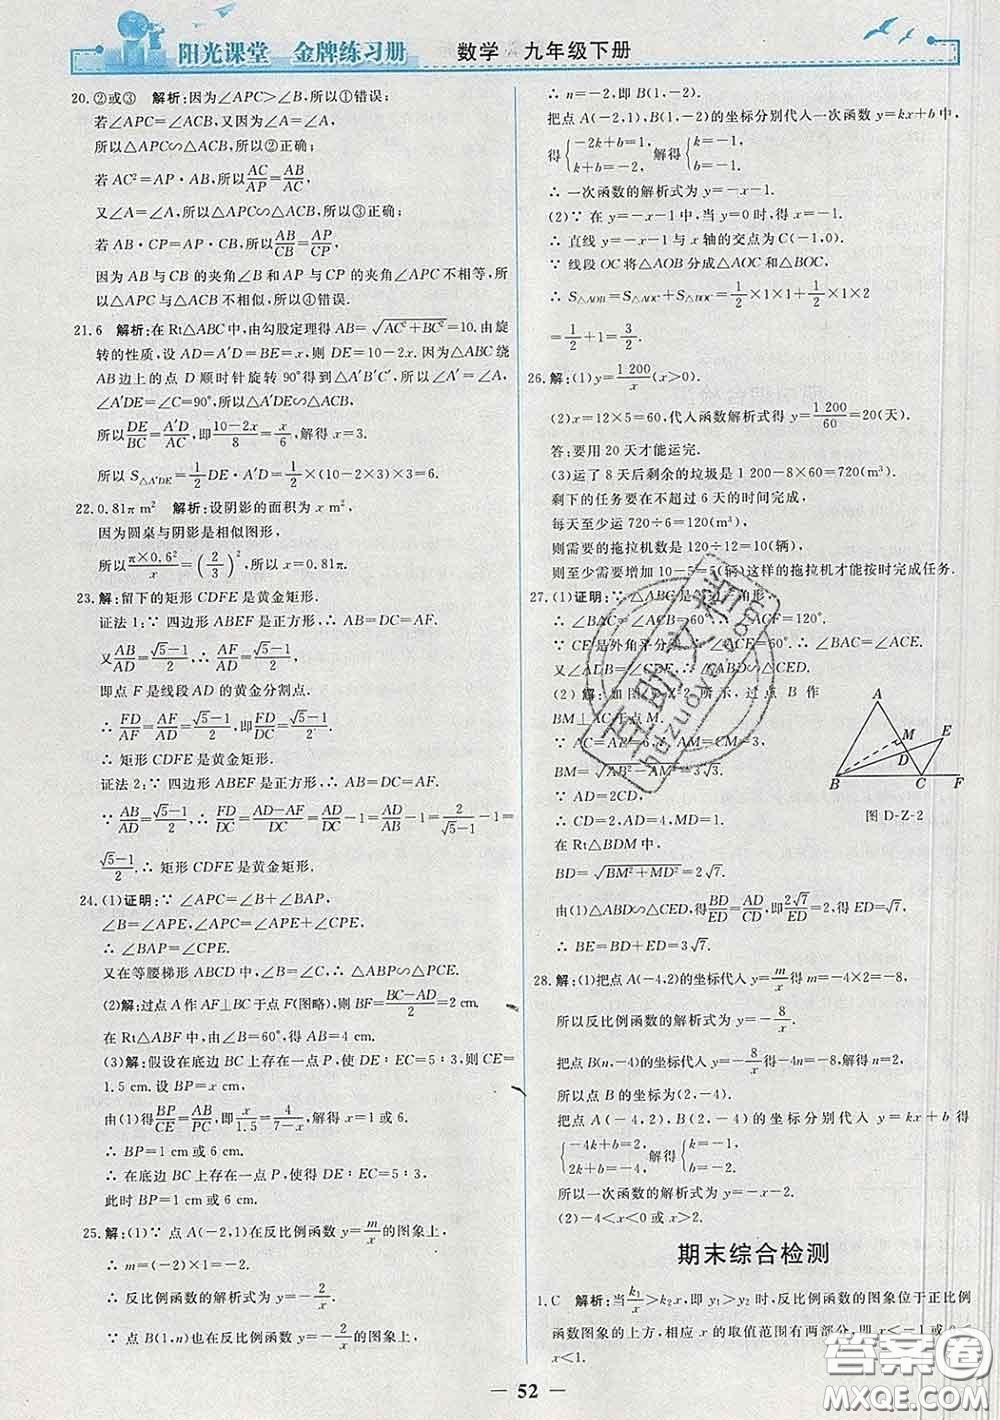 阳光课堂 金牌练习册 数学·九年级下册
20.②或③ 解析:因为∠APC>∠B,所以①错误;
若∠APC=∠ACB,又因为∠A=∠A,
所以△APC∽△ACB,所以②正确;
若 AC²=AP·AB,所以AC/AP=AB/AC,
又∠A=∠A,所以△APC∽△ACB,所以③正确;
若 AB·CP=AP·CB,所以AB/CB=AP/CP,
因为 AB与 CB 的夹角∠B和 AP 与 CP 的夹角∠APC 不相等,所
以△APC 与△ACB 不相似,所以④错误.
21.6 解析:在 Rt△ABC 中,由勾股定理得 AB=√(AC²+BC²)=10.由旋
转的性质,设 AD=A′D=BE=x,则 DE=10-2x.因为△ABC 绕
AB边上的点 D 顺时针旋转 90°得到△A′B′C′,所以∠A′=∠A,
∠A′DE=∠C=90°,所以△A′DE∽△ACB,
所以DE/BC=A′D/AC,即(10-2x)/8=x/6,解得 x=3.
所以 S△A′DE=1/2 DE·A′D=1/2×(10-2×3)×3=6.
22.0.81π m² 解析:设阴影的面积为 x m²,
因为圆桌与阴影是相似图形,
所以(π×0.6²)/x=(2/3)²,所以 x=0.81π.
23.解:留下的矩形 CDFE 是黄金矩形.
证法 1:∵ 四边形 ABEF 是正方形,∴ AB=AF.
又AB/AD=(√5-1)/2,∴ AF/AD=(√5-1)/2,
即点 F 是线段 AD 的黄金分割点.
∴ FD/AF=AF/AD=(√5-1)/2,即FD/DC=(√5-1)/2.
∴ 矩形 CDFE 是黄金矩形.
证法 2:∵ 四边形 ABEF 是正方形,∴ AB=AF.
∵ AB/AD=(√5-1)/2,∴ FD/DC=(AD-AF)/DC=AD/DC-AF/DC=AD/AB-1=2/(√5-1)-1=
(√5-1)/2.∴ 矩形 CDFE 是黄金矩形.
24.(1)证明:∵ ∠APC=∠B+∠BAP,
∠B=∠APE,∠APC=∠APE+∠CPE,
∴ ∠BAP=∠CPE.
又在等腰梯形 ABCD 中,∠B=∠C,∴ △ABP∽△PCE.
(2)解:过点 A 作 AF⊥BC 于点 F(图略),则 BF=(BC-AD)/2=2 cm.
在 Rt△ABF 中,由∠B=60°,得 AB=4 cm.
(3)解:假设在底边 BC 上存在一点 P,使 DE∶EC=5∶3,则CE=
1.5 cm.设 BP=x cm,
由(1)得BP/CE=AB/PC,即x/1.5=4/(7-x),解得 x=1 或 6.
∴ BP=1 cm或 6 cm.
∴ 在底边 BC 上存在一点 P,使得 DE∶EC=5∶3,
此时 BP=1 cm 或 6 cm.
25.解:(1)∵ 点 A(-2,1)在反比例函数 y=m/x的图象上,
∴ m=(-2)×1=-2.
∴ 反比例函数的解析式为 y=-2/x.
∵ 点 B(1,n)也在反比例函数 y=-2/x的图象上,
∴ n=-2,即 B(1,-2).
把点 A(-2,1),B(1,-2)的坐标分别代入一次函数 y=kx+b中,
得{-2k+b=1, k+b=-2, 解得{k=-1, b=-1.
∴ 一次函数的解析式为 y=-x-1.
(2)∵ 在 y=-x-1 中,当 y=0 时,得 x=-1.
∴ 直线 y=-x-1 与 x 轴的交点为 C(-1,0).
∵ 线段 OC 将△AOB 分成△AOC 和△BOC,
∴ S△AOB=S△AOC+S△BOC=1/2×1×1+1/2×1×2
=1/2+1=3/2.
26.解:(1)y=1 200/x(x>0).
(2)x=12×5=60,代入函数解析式得 y=1 200/60=20(天).
答:要用 20 天才能运完.
(3)运了 8 天后剩余的垃圾是 1 200-8×60=720(m³).
剩下的任务要在不超过 6 天的时间完成,
每天至少运 720÷6=120(m³),
则需要的拖拉机数是 120÷12=10(辆),
则至少需要增加 10-5=5(辆)这样的拖拉机才能按时完成任务.
27.(1)证明:∵ △ABC 是 角形,
∴ ∠BAC=∠ACB=60°, ∠ACF=120°.
∵ CE是外角平分线, ∴ ∠BAC=∠ACE.
又∵ ∠ADB=∠CDE,∴ △ABD∽△CED.
(2)解:如图 所示,过点 B 作
BM⊥AC于点 M.
∵ AC=AB=6,∴ AM=CM=3,
BM=√(AB²-AM²)=3√3.
∵ AD=2CD,
∴ CD=2,AD=4,MD=1.
在 Rt△BDM 中,
BD=√(BM²+MD²)=2√7.
由(1)△ABD∽△CED,得BD/ED=AD/CD,即2√7/ED=2,得 ED=√7,
∴ BE=BD+ED=3√7.
A
M
E
D
B
C
F
图 D-Z-2
28.解:(1)把点 A(-4,2)的坐标代入 y=m/x得 m=-4×2=-8,
所以反比例函数的解析式为 y=-8/x.
把点 B(n,-4)的坐标代入 y=-8/x得-4n=-8,解得 n=2,
所以点 B 的坐标为(2,-4).
把点 A(-4,2),B(2,-4)的坐标分别代入 y=kx+b 得
{-4k+b=2, 2k+b=-4, 解得{k=-1, b=-2.
所以一次函数的解析式为 y=-x-2.
(2)-4<x<0 或 x>2.
期末综合检测
1.C 解析:当k₁/x>k₂x,即 y₁>y₂ 时,反比例函数的图象位于正比例
函数图象的上方,相应 x 的取值范围有两部分,即-1<x<0或
x<1.
52
互助文档
hdzuoye.com
答案圈
MXQE.COM